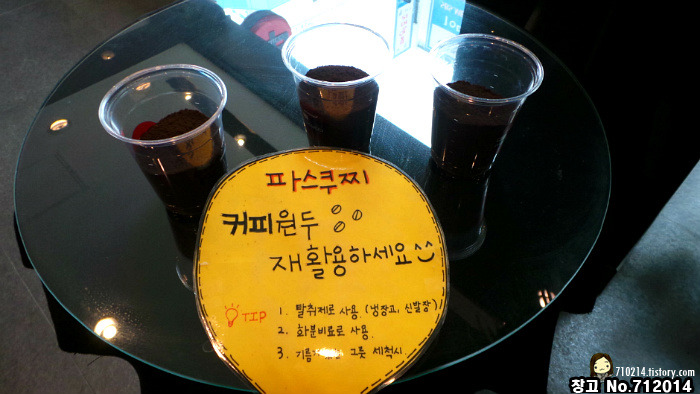 파스쿠찌
커피원두
재활용하세요^^
TIP
1. 탈취제로 사용. (냉장고, 신발장)
2. 화분비료로 사용.
3. 그릇 세척시.
710214.tistory.com
창고 No.712014